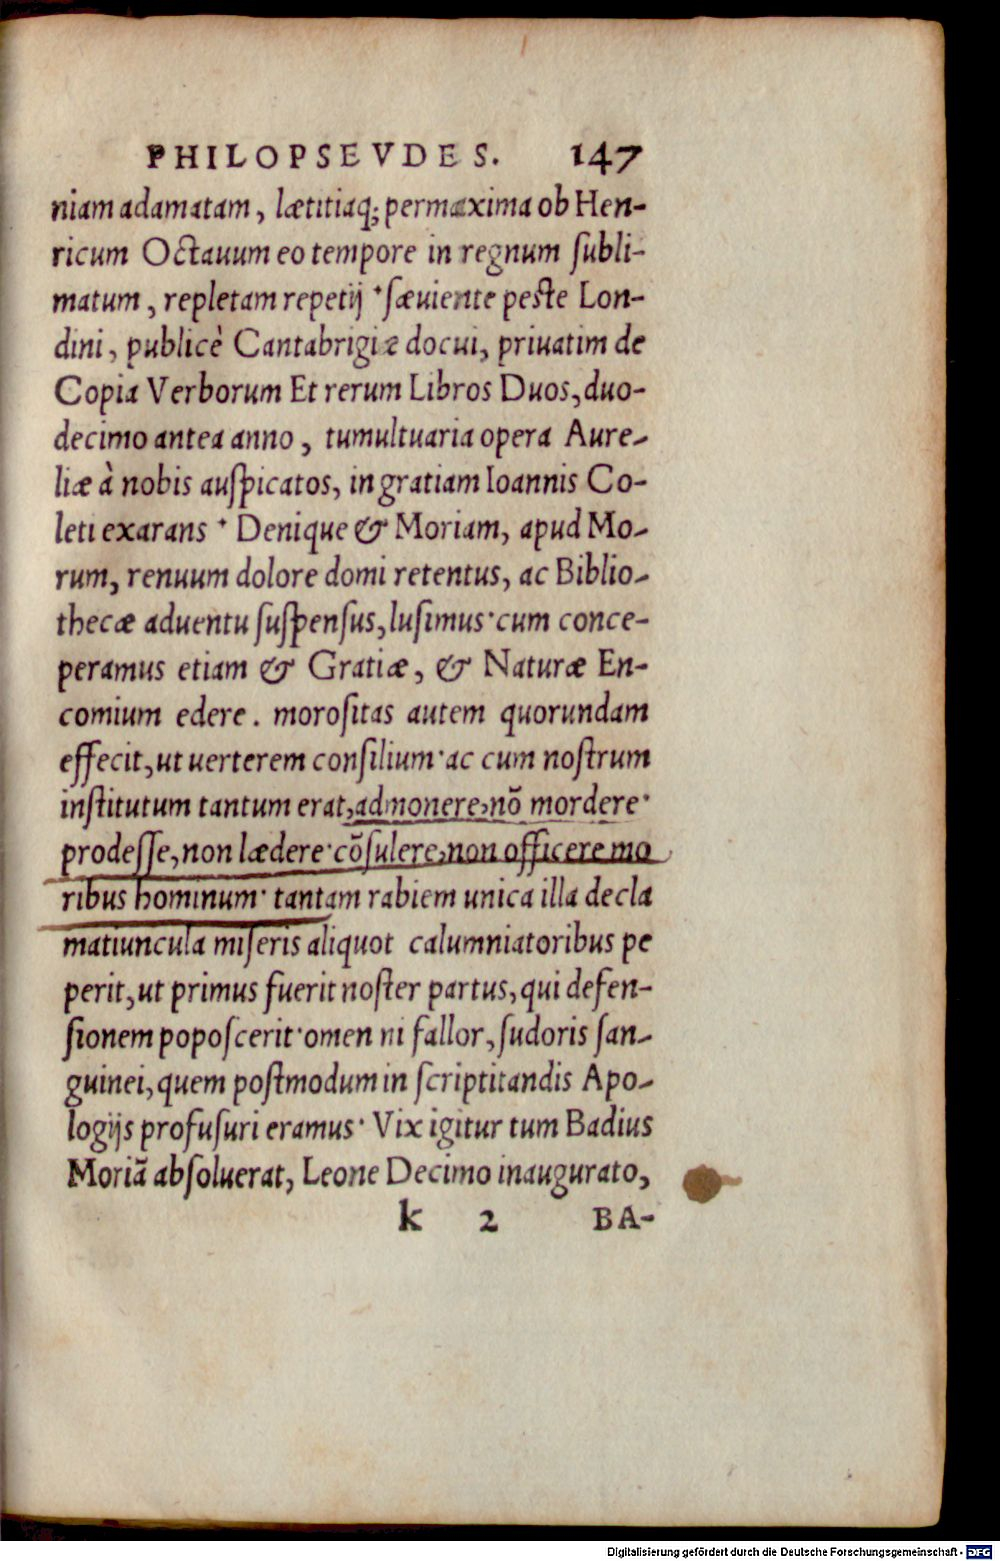 PHILOPSEVDES. 147
niam adamatam, lætitiaq; permaxima ob Hen-
ricum Octauum eo tempore in regnum ſubli-
matum, repletam repetij · ſæuiente peſte Lon-
dini, publicè Cantabrigiæ docui, priuatim de
Copia Verborum Et rerum Libros Duos, duo-
decimo antea anno, tumultuaria opera Aure-
liæ à nobis auſpicatos, in gratiam Ioannis Co-
leti exarans · Denique & Moriam, apud Mo-
rum, renuum dolore domi retentus, ac Biblio-
thecæ aduentu ſuſpenſus, luſimus · cum conce-
peramus etiam & Gratiæ, & Naturæ En-
comium edere. moroſitas autem quorundam
effecit, ut uerterem conſilium · ac cum noſtrum
inſtitutum tantum erat, admonere, nõ mordere ·
prodeſſe, non lædere · cõſulere, non officere mo
ribus hominum · tantam rabiem unica illa decla
matiuncula miſeris aliquot calumniatoribus pe
perit, ut primus fuerit noſter partus, qui defen-
ſionem popoſcerit · omen ni fallor, ſudoris ſan-
guinei, quem poſtmodum in ſcriptitandis Apo-
logijs profuſuri eramus · Vix igitur tum Badius
Moriã abſoluerat, Leone Decimo inaugurato,
k 2 BA-
Digitalisierung gefördert durch die Deutsche Forschungsgemeinschaft - DFG